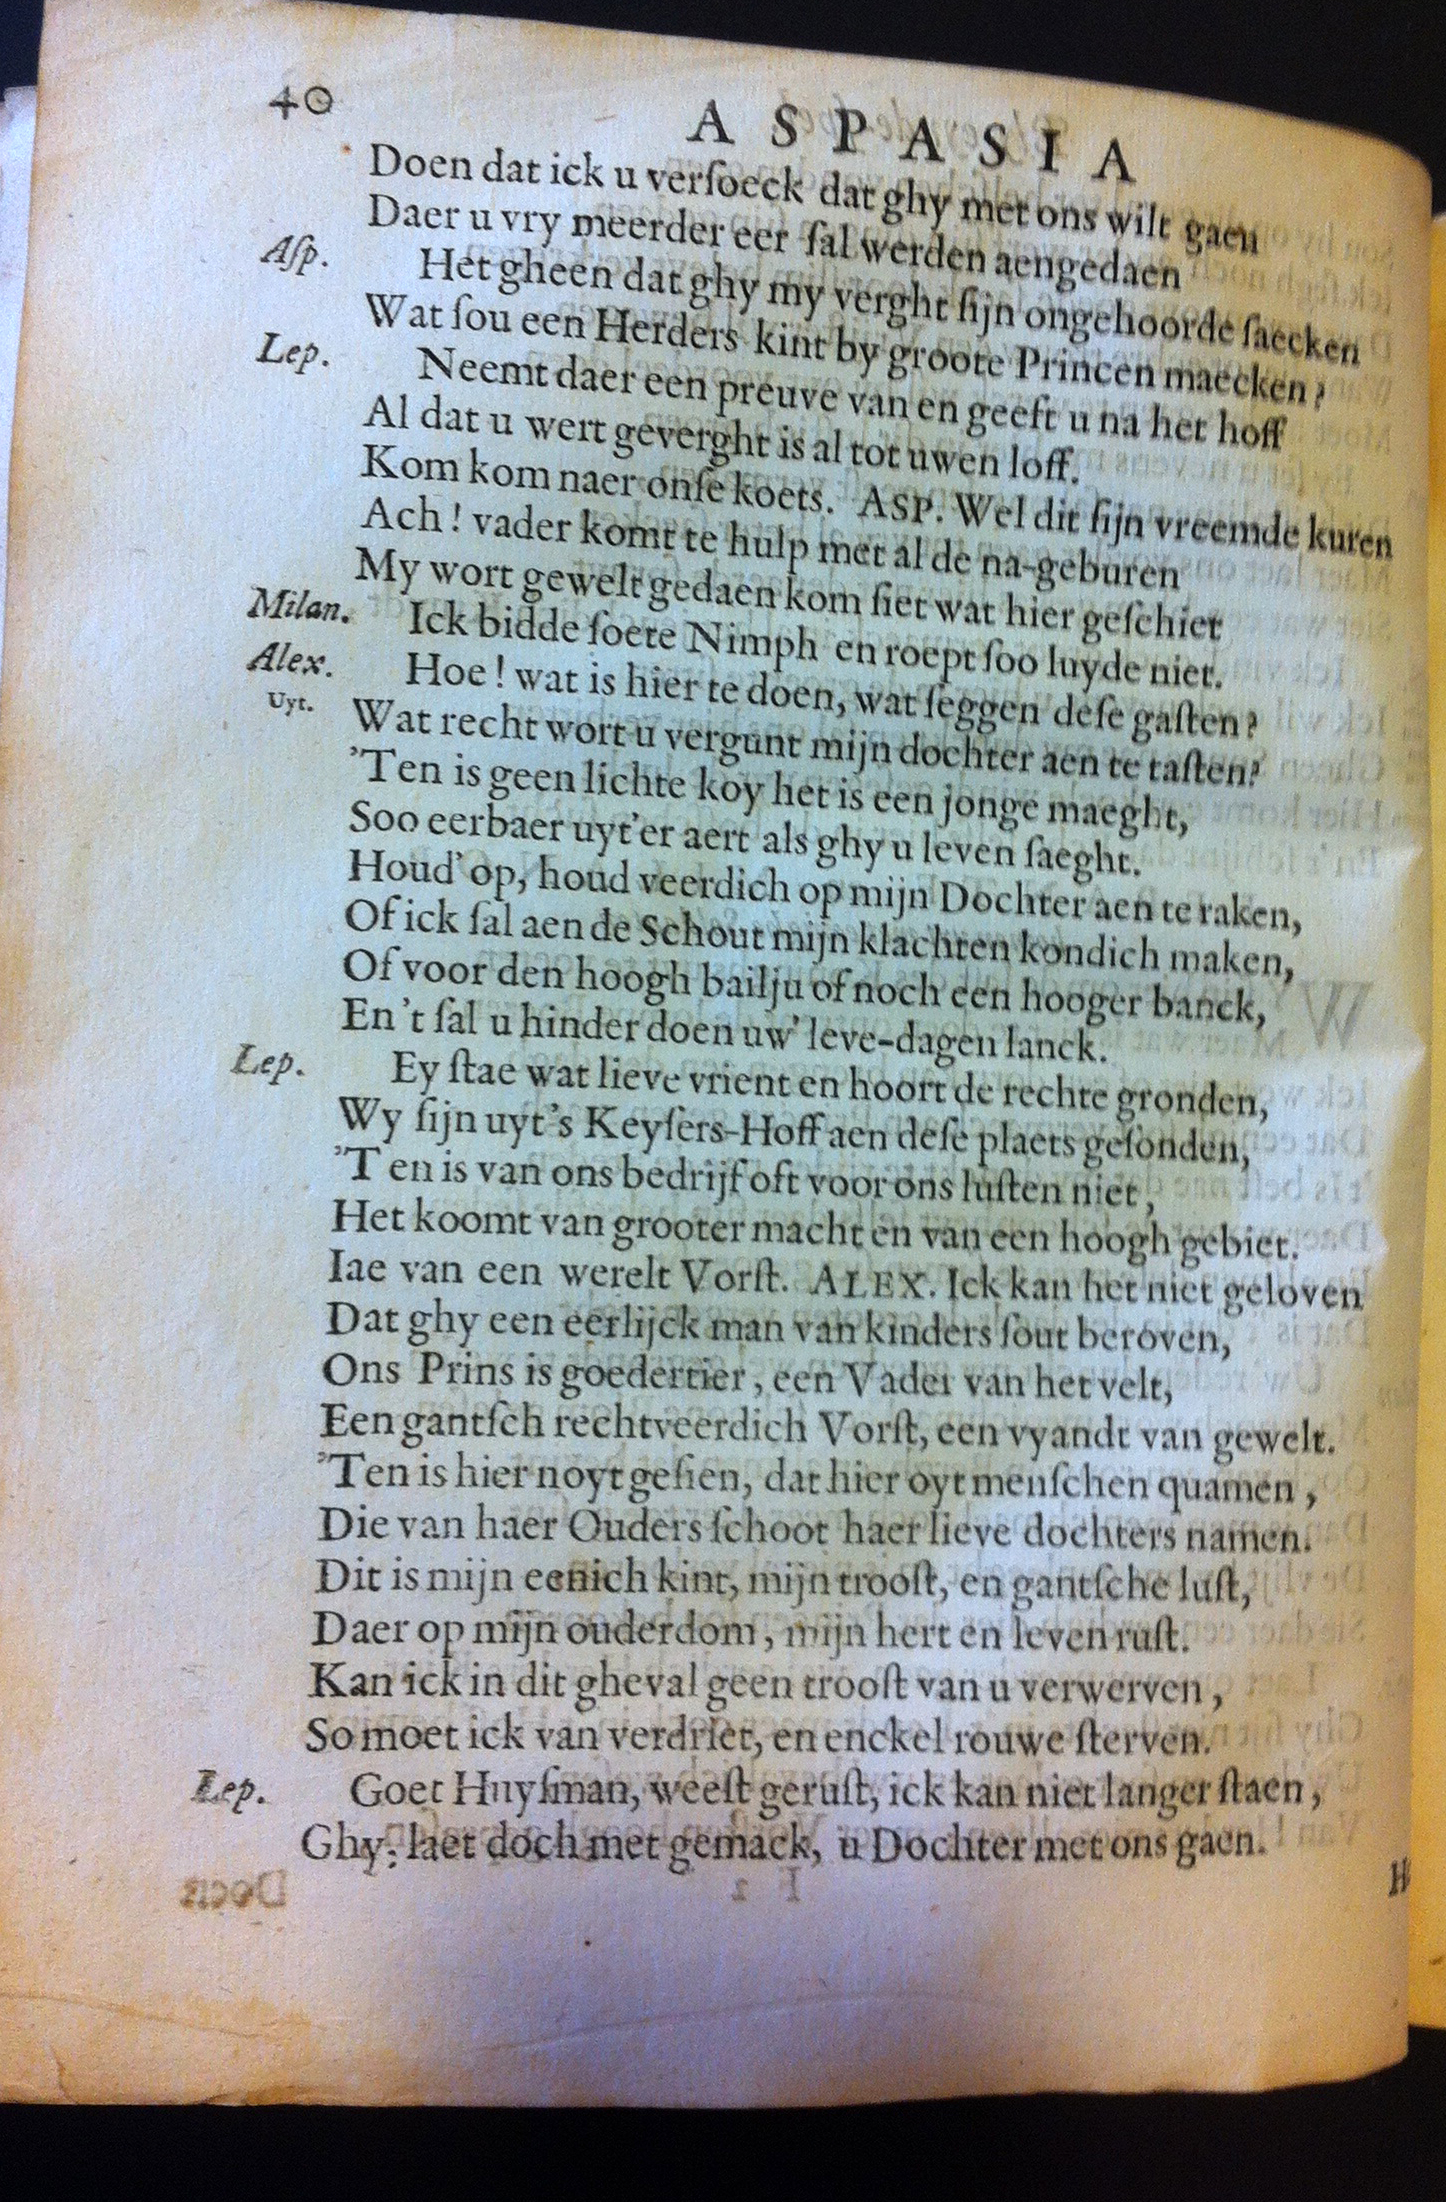 40
ASPASIA
Doen dat ick u verſoeck dat ghy met ons wilt gaen
Daer u vry meerder eer ſal werden aengedaen
Aſp. Het gheen dat ghy my verght ſijn ongehoorde ſaecken
Wat ſou een Herders kint by groote Princen maecken?
Lep. Neemt daer een preuve van en geeft u na het hoff
Al dat u wert geverght is al tot uwen loff.
Kom kom naer onſe koets. ASP. Wel dit ſijn vreemde kuren
Ach! vader komt te hulp met al de na-geburen
My wort gewelt gedaen kom ſiet wat hier geſchiet
Milan. Ick bidde ſoete Nimph en roept ſoo luyde niet.
Alex. Hoe! wat is hier te doen, wat ſeggen deſe gaſten?
Uyt. Wat recht wort u vergunt mijn dochter aen te taſten?
'Ten is geen lichte koy het is een jonge maeght,
Soo eerbaer uyt'er aert als ghy u leven ſaeght.
Houd' op, houd veerdich op mijn Dochter aen te raken,
Of ick ſal aen de Schout mijn klachten kondich maken,
Of voor den hoogh bailju of noch een hooger banck,
En 't ſal u hinder doen uw' leve-dagen lanck.
Lep. Ey ſtae wat lieve vrient en hoort de rechte gronden,
Wy ſijn uyt 's Keyſers-Hoff aen deſe plaets geſonden,
'T en is van ons bedrijf oft voor ons luſten niet,
Het koomt van grooter macht en van een hoogh gebiet.
Iae van een werelt Vorſt. ALEX. Ick kan het niet geloven
Dat ghy een eerlijck man van kinders ſout beroven,
Ons Prins is goedertier, een Vader van het velt,
Een gantſch rechtveerdich Vorſt, een vyandt van gewelt.
'Ten is hier noyt geſien, dat hier oyt menſchen quamen,
Die van haer Ouders ſchoot haer lieve dochters namen.
Dit is mijn eenich kint, mijn trooſt, en gantſche luſt,
Daer op mijn ouderdom, mijn hert en leven ruſt.
Kan ick in dit gheval geen trooſt van u verwerven,
So moet ick van verdriet, en enckel rouwe ſterven.
Lep. Goet Huyſman, weeſt geruſt, ick kan niet langer ſtaen,
Ghy, laet doch met gemack, u Dochter met ons gaen.